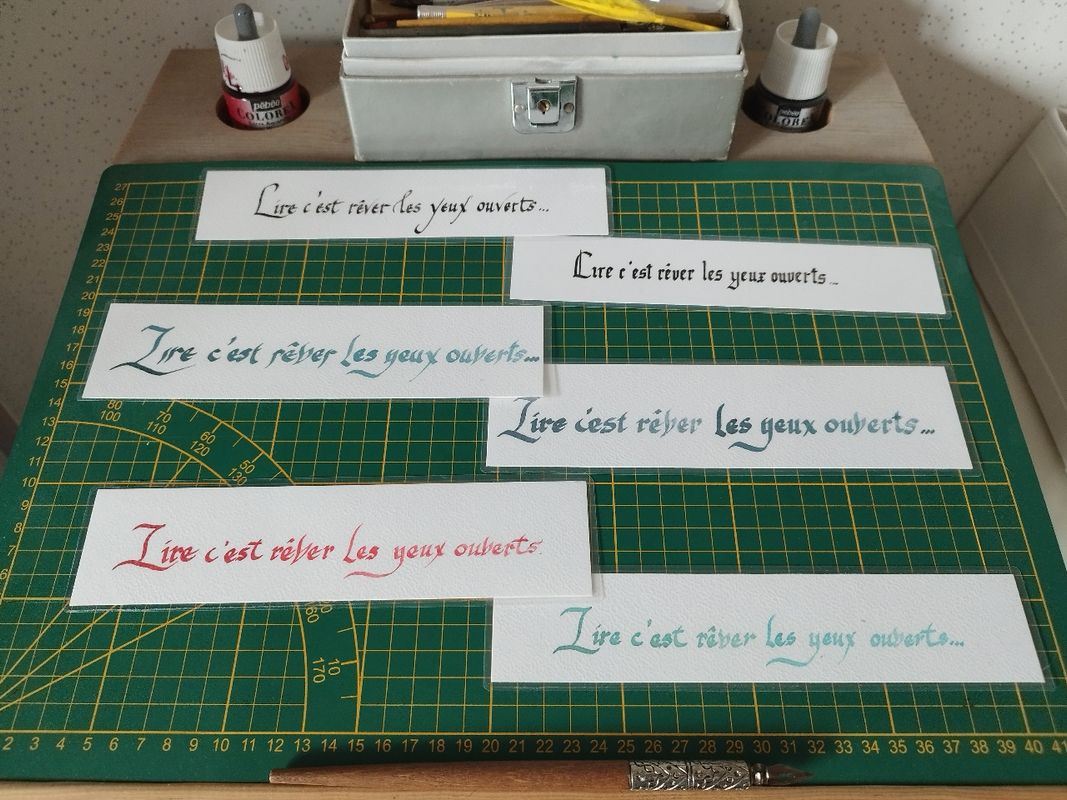 pébéo
COLOREX
pébéo
COLOREX
Lire c'est rêver les yeux ouverts...
Lire c'est rêver les yeux ouverts...
Lire c'est rêver les yeux ouverts...
Lire c'est rêver les yeux ouverts...
Lire c'est rêver les yeux ouverts
Lire c'est rêver les yeux ouverts...
27
26
25
23
22
21
20
19
18
17
16
15
14
13
12
11
10
9
8
7
6
80 70 60 50
100 110 120 130
160
170 10
2 3 4 5 6 7 8 9 10 11 12 13 14 15 16 17 18 19 20 21 22 23 24 25 26 27 28 29 30 31 32 33 34 35 36 37 38 39 40 41